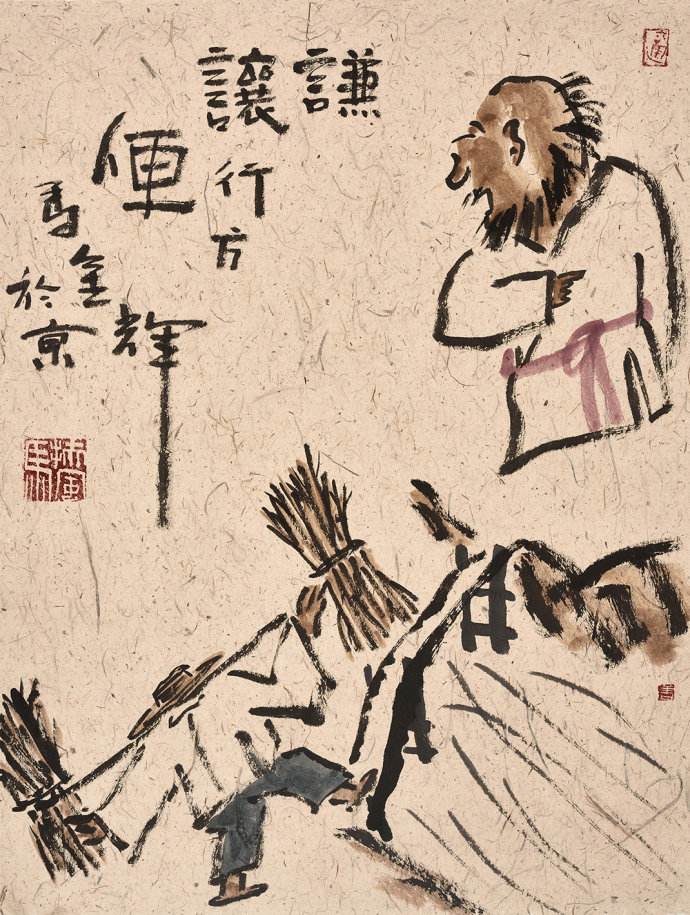 謙
讓行方
便
馬金輝
於京